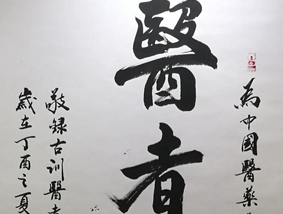 為中國醫藥
醫者
敬録古训醫者
歲在丁酉之夏